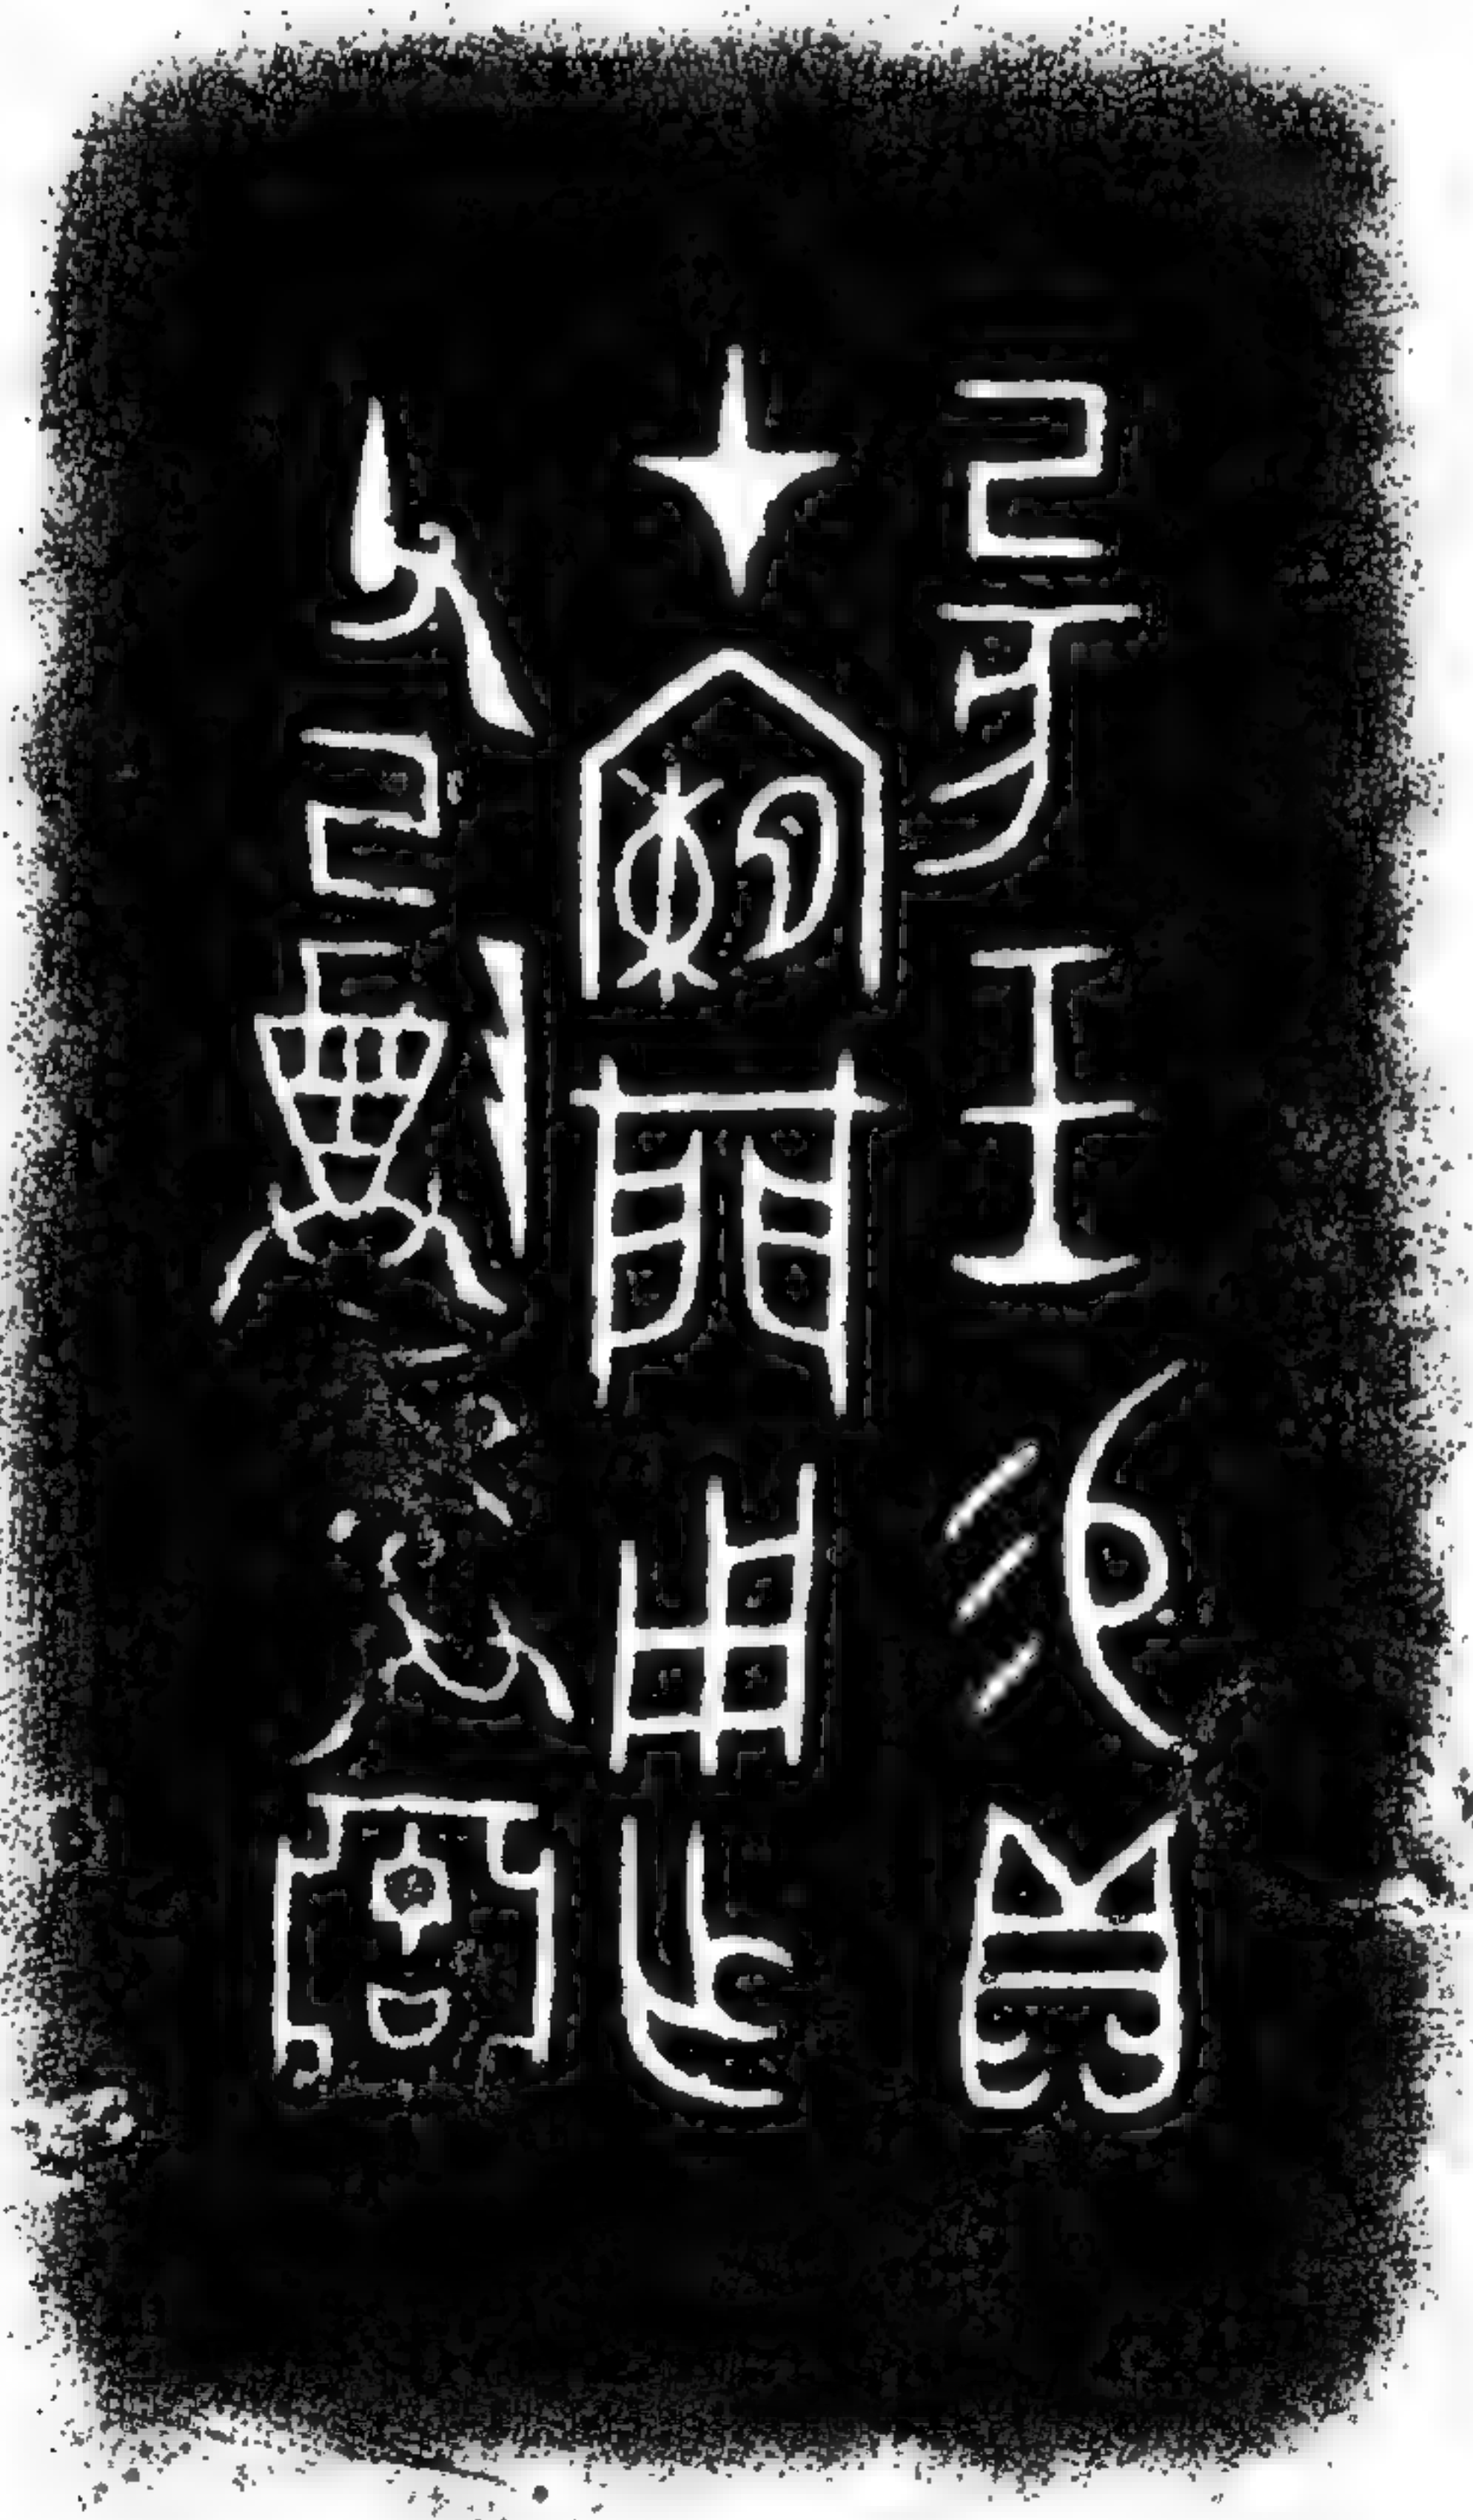 己亥王易貝
才闌用乍
父己尊彝亞古